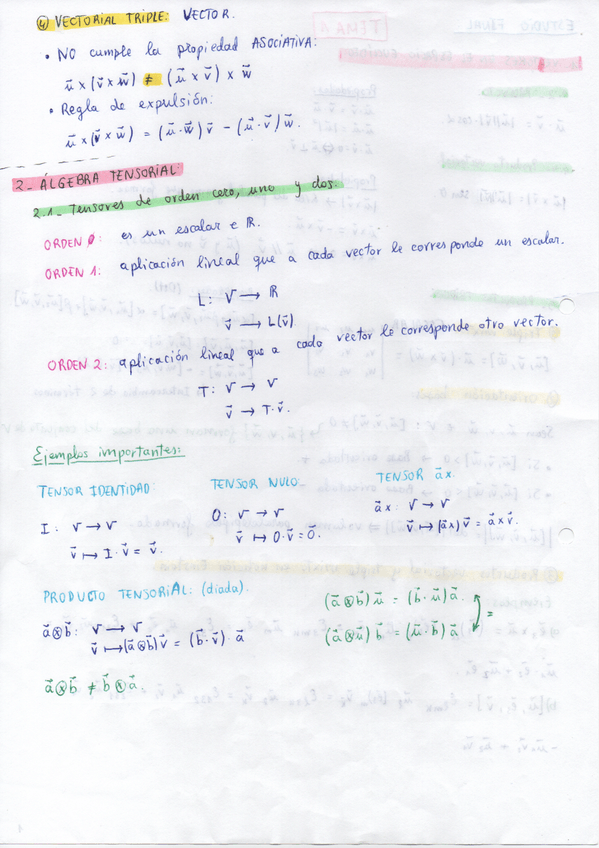 ④ VECTORIAL TRIPLE: VECTOR.
• NO cumple la propiedad ASOCIATIVA:
u⃗ × (v⃗ × w⃗) ≠ (u⃗ × v⃗) × w⃗
• Regla de expulsión:
u⃗ × (v⃗ × w⃗) = (u⃗·w⃗) v⃗ − (u⃗·v⃗) w⃗.
2- ÁLGEBRA TENSORIAL:
2.1- Tensores de orden cero, uno y dos.
ORDEN 0: es un escalar ∈ ℝ.
ORDEN 1: aplicación lineal que a cada vector le corresponde un escalar.
L: V → ℝ
v⃗ → L(v⃗)
ORDEN 2: aplicación lineal que a cada vector le corresponde otro vector.
T: V → V
v⃗ → T·v⃗.
Ejemplos importantes:
TENSOR IDENTIDAD:
I: V → V
v⃗ ↦ I·v⃗ = v⃗.
TENSOR NULO
O: V → V
v⃗ ↦ O·v⃗ = 0⃗.
TENSOR a⃗x.
a⃗x: V → V
v⃗ ↦ (a⃗x) v⃗ = a⃗×v⃗.
PRODUCTO TENSORIAL: (diada).
a⃗⊗b⃗: V → V
v⃗ ↦ (a⃗⊗b⃗)v⃗ = (b⃗·v⃗) a⃗
(a⃗⊗b⃗) u⃗ = (b⃗·u⃗) a⃗.
=
(a⃗⊗u⃗) b⃗ = (u⃗·b⃗) a⃗
a⃗⊗b⃗ ≠ b⃗⊗a⃗.